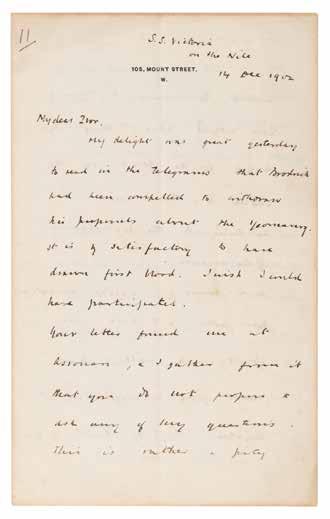 11
S.S. Victoria
on the Nile
105, MOUNT STREET.
W.
14 Dec 1902
My dear Ivor.
My delight was great yesterday
to read in the telegrams that Brodrick
had been compelled to withdraw
his proposals about the Yeomanry.
It is satisfactory to have
drawn first blood. I wish I could
have participated.
Your letter found me at
Assouan, & I gather from it
that you do not propose to
ask any of my questions.
This is rather a pity